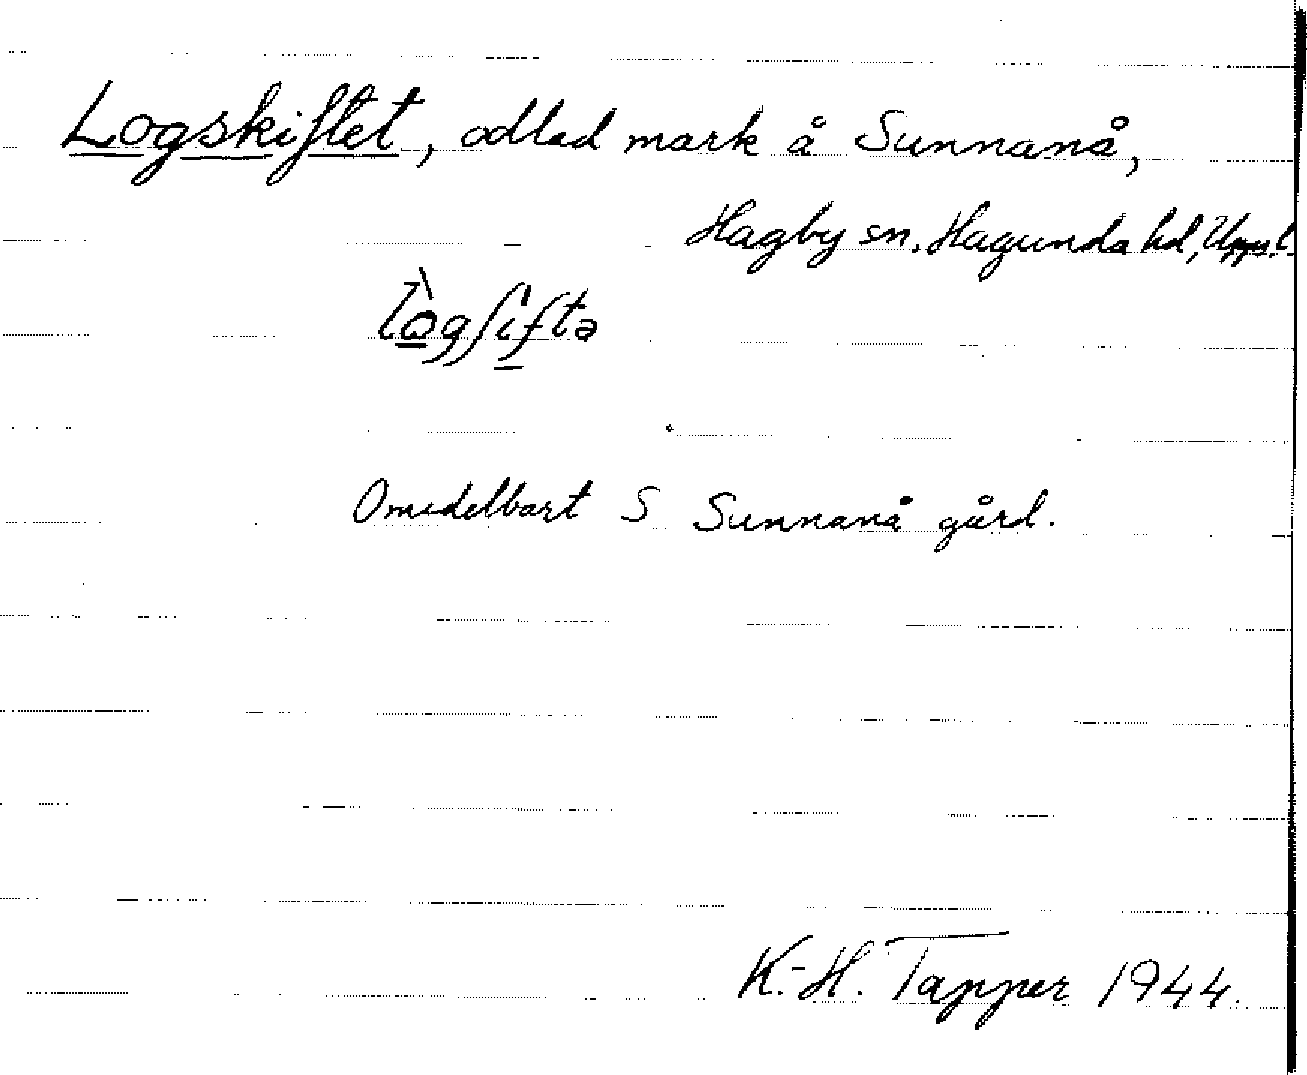 Logskiftet, odlad mark å Sunnanå,
Hagby sn. Hagunda hd, Uppl.
Omedelbart S Sunnanå gård.
K.-H. Tapper 1944.